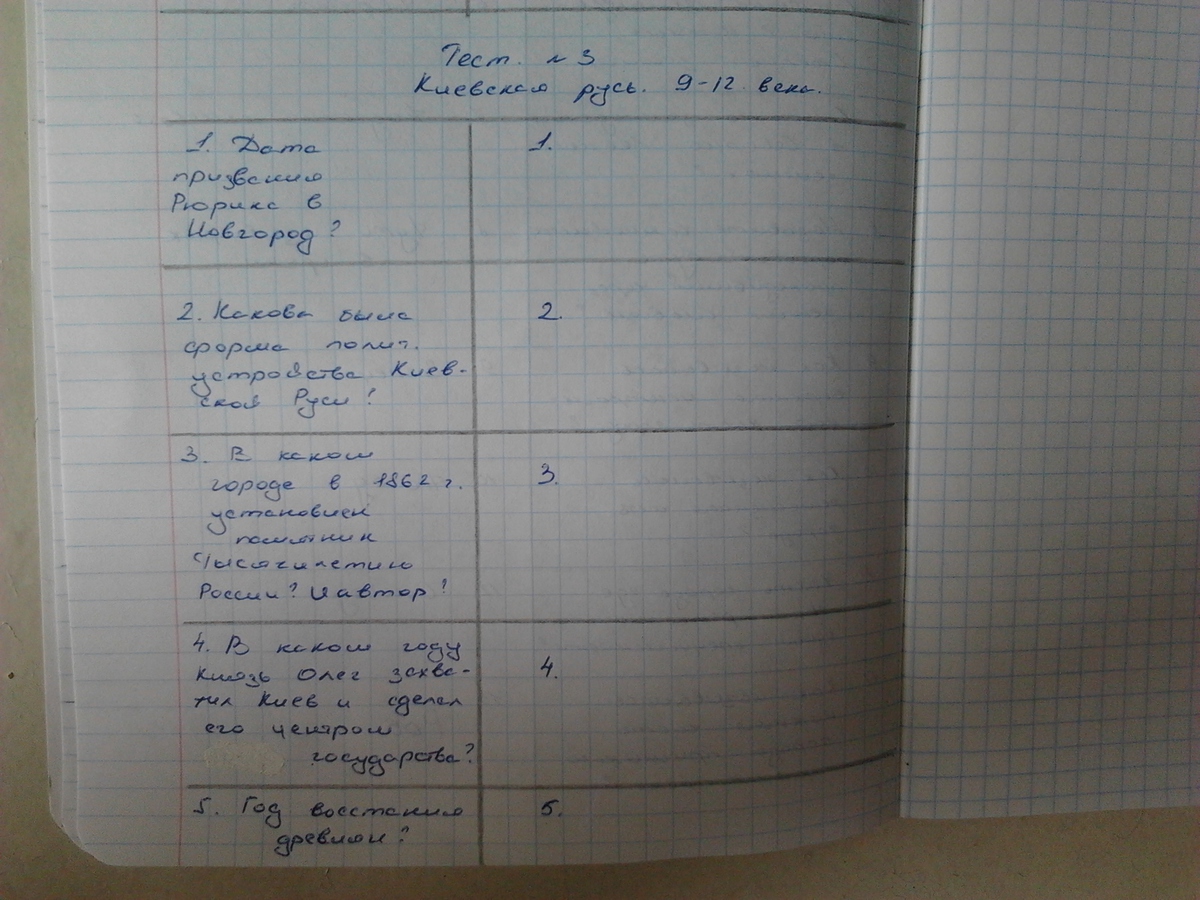 Тест. №3
Киевская русь. 9-12 века.
1. Дата
призвания
Рюрика в
Новгород?
1.
2. Какова была
форма полит.
устройства Киев-
ской Руси?
2.
3. В каком
городе в 1862 г.
установлен
памятник
Тысячилетию
России? И автор?
3.
4. В каком году
Князь Олег захва-
тил Киев и сделал
его центром
государства?
4.
5. Год восстания
древлян?
5.